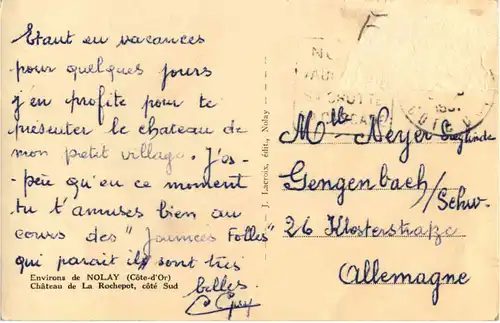 Etant en vacances
pour quelques jours
j'en profite pour te
présenter le chateau de
mon petit village. J'es-
père qu'en ce moment
tu t'amuses bien au
cours des "Journées Folles"
qui parait ils sont très
belles.
Environs de NOLAY (Côte-d'Or)
Château de La Rochepot, côté Sud
J. Lacroix, édit., Nolay
F
Mlle Neyer Sieglinde
Gengenbach/Schw.
26 Klosterstraße
Allemagne